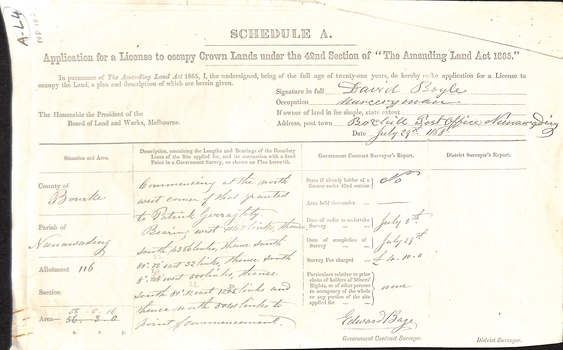 A-L4
SCHEDULE A.
Application for a License to occupy Crown Lands under the 42nd Section of "The Amending Land Act 1865."
In pursuance of The Amending Land Act 1865, I, the undersigned, being of the full age of twenty-one years, do hereby make application for a License to
occupy the Land, a plan and description of which are herein given.
Signature in full David Boyle
Occupation Nurseryman
The Honorable the President of the
Board of Land and Works, Melbourne.
If owner of land in fee simple, state extent
Address, post town Box hill Post Office Nunawading
Date July 29th 1868
Situation and Area.
Description, containing the Lengths and Bearings of the Boundary
Lines of the Site applied for, and its connection with a fixed
Point in a Government Survey, as shown on Plan herewith.
Government Contract Surveyor's Report.
District Surveyor's Report.
County of
Bourke
Parish of
Nunawading
Allotment 116
Section
Area
58. 0. 16
56. 2. 0
a. r. p.
Commencing at the north
west corner of that granted
to Patrick Gerraghty
Bearing west links, thence
south links, thence south
east 52 links, thence south
west 500 links, thence
south east links and
thence north links to
point of commencement.
State if already holder of a
license under 42nd section
No
Area held thereunder
Date of order to undertake
Survey
July 8th
Date of completion of
Survey
July 29th
Survey Fee charged £ 4.10.0
Particulars relative to prior
claims of holders of Miners'
Rights, or of other persons
to occupancy of the whole
or any portion of the site
applied for
none
Edward Bage
Government Contract Surveyor.
District Surveyor.